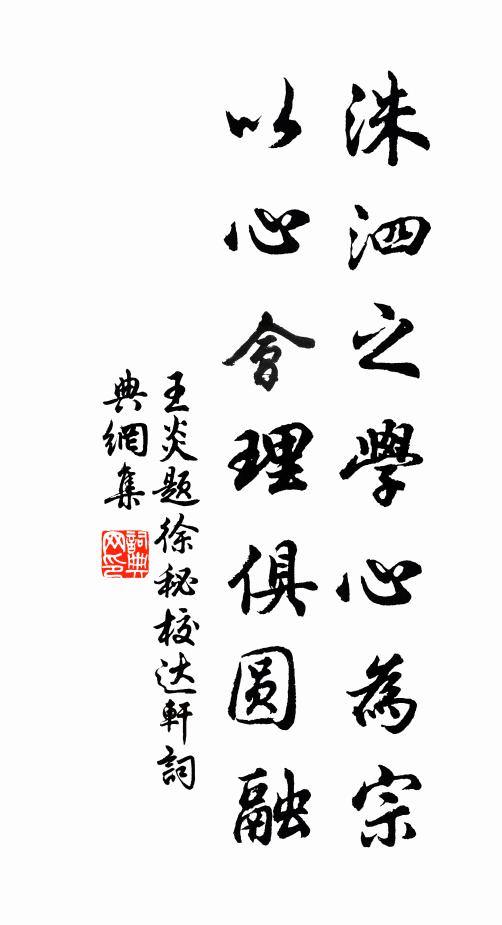 洙泗之學心為宗
以心會理俱圆融
王炎题徐秘校达軒詞
典網集
詞典
网印